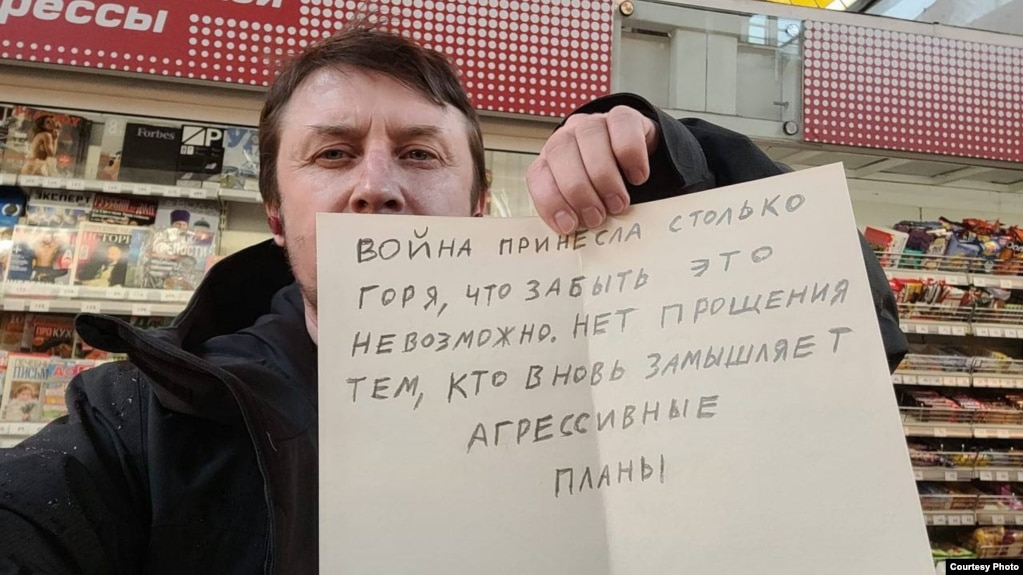 рессы
Forbes
ЭКСПЕРТ
ПИСЬМ
ВОЙНА ПРИНЕСЛА СТОЛЬКО
ГОРЯ, ЧТО ЗАБЫТЬ ЭТО
НЕВОЗМОЖНО. НЕТ ПРОЩЕНИЯ
ТЕМ, КТО ВНОВЬ ЗАМЫШЛЯЕТ
АГРЕССИВНЫЕ
ПЛАНЫ
Courtesy Photo